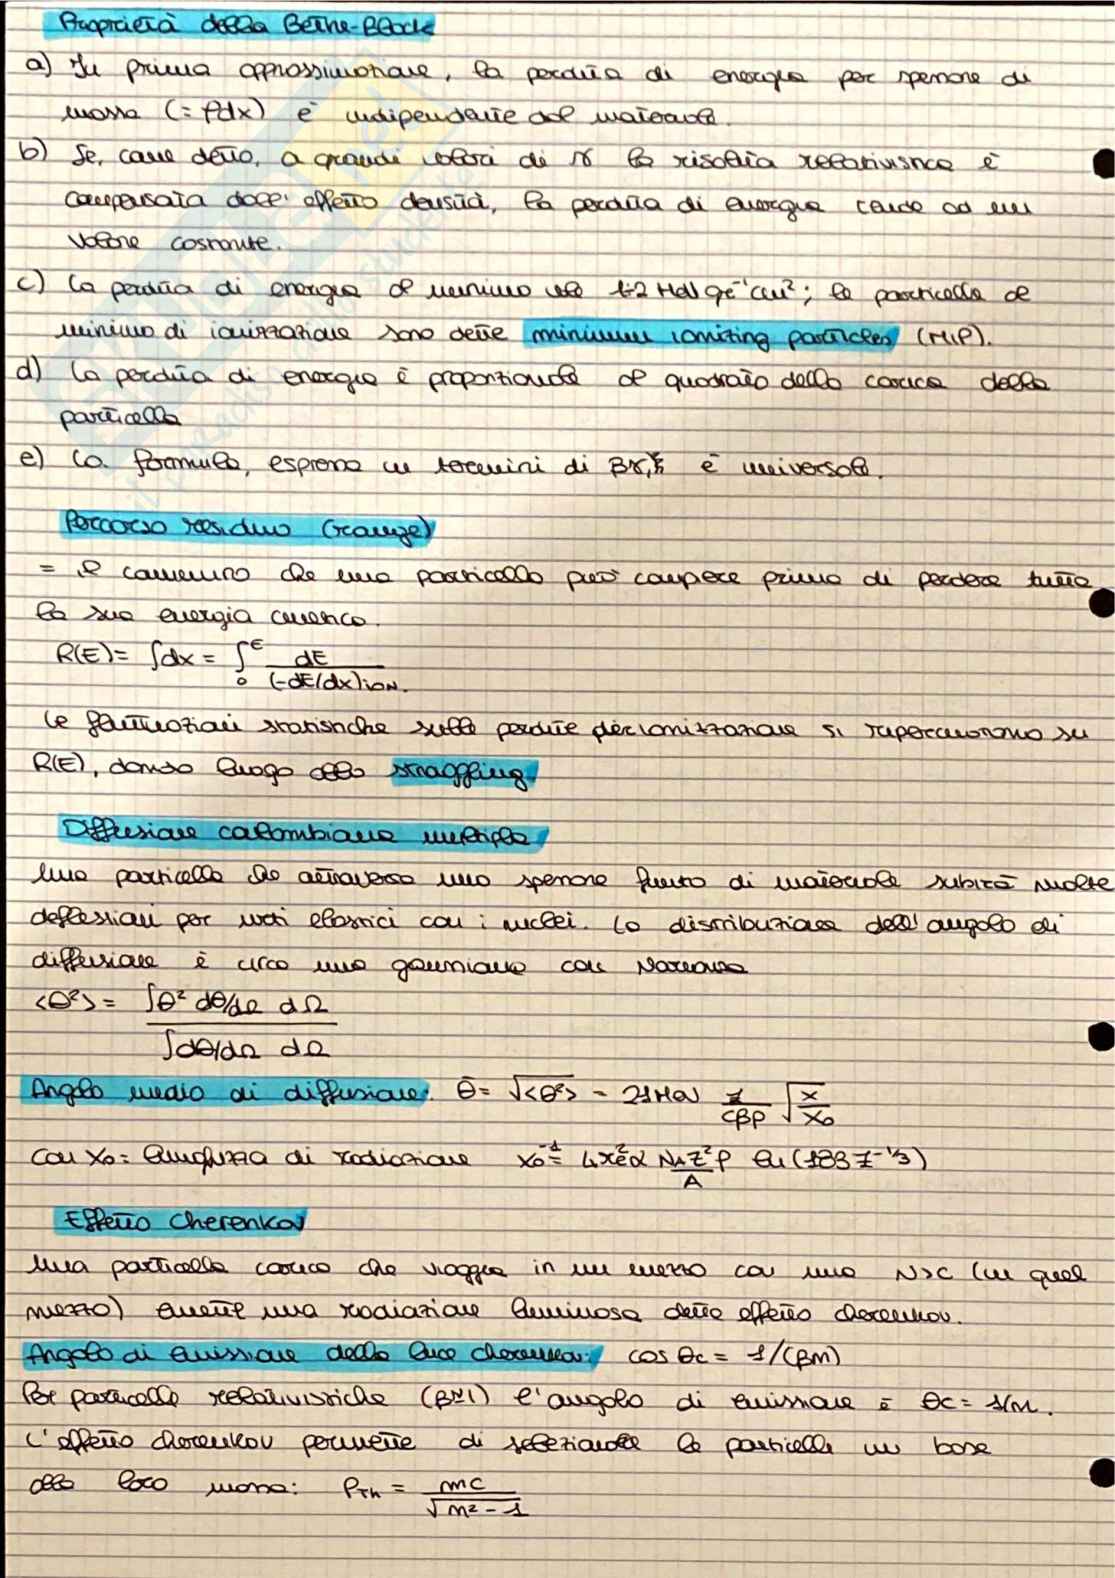 Proprietà della Bethe-Block
a) In prima approssimazione, la perdita di energia per spessore di
massa (=ρdx) è indipendente dal materiale.
b) Se, come detto, a grandi valori di γ la risalita relativistica è
compensata dall'effetto densità, la perdita di energia tende ad un
valore costante.
c) La perdita di energia al minimo vale 1-2 MeV gr⁻¹cm²; le particelle al
minimo di ionizzazione sono dette minimum ionizing particles (MIP).
d) La perdita di energia è proporzionale al quadrato della carica della
particella
e) La formula, espressa in termini di βγ, è universale.
Percorso residuo (range)
= il cammino che una particella può compiere prima di perdere tutta
la sua energia cinetica.
R(E)= ∫dx = ∫₀ᴱ dE/(-dE/dx)ion.
Le fluttuazioni statistiche sulla perdita per ionizzazione si ripercuotono su
R(E), dando luogo allo straggling.
Diffusione coulombiana multipla
Una particella che attraversa uno spessore finito di materiale subirà molte
deflessioni per urti elastici con i nuclei. La distribuzione dell'angolo di
diffusione è circa una gaussiana con varianza
<θ²> = ∫θ² dθ/dΩ dΩ / ∫dθ/dΩ dΩ
Angolo medio di diffusione: θ̄= √<θ²> = 21MeV z/(cβp) √(x/X₀)
con X₀= lunghezza di radiazione X₀⁻¹= 4r²eα NAZ²ρ/A ln(183 Z⁻¹/³)
Effetto Cherenkov
Una particella carica che viaggia in un mezzo con una v>c (in quel
mezzo) emette una radiazione luminosa detta effetto cherenkov.
Angolo di emissione della luce cherenkov: cos θc = 1/(βn)
Per particelle relativistiche (β≃1) l'angolo di emissione è θc= 1/n.
L'effetto cherenkov permette di selezionare le particelle in base
alla loro massa: PTh = mc/√(n²-1)